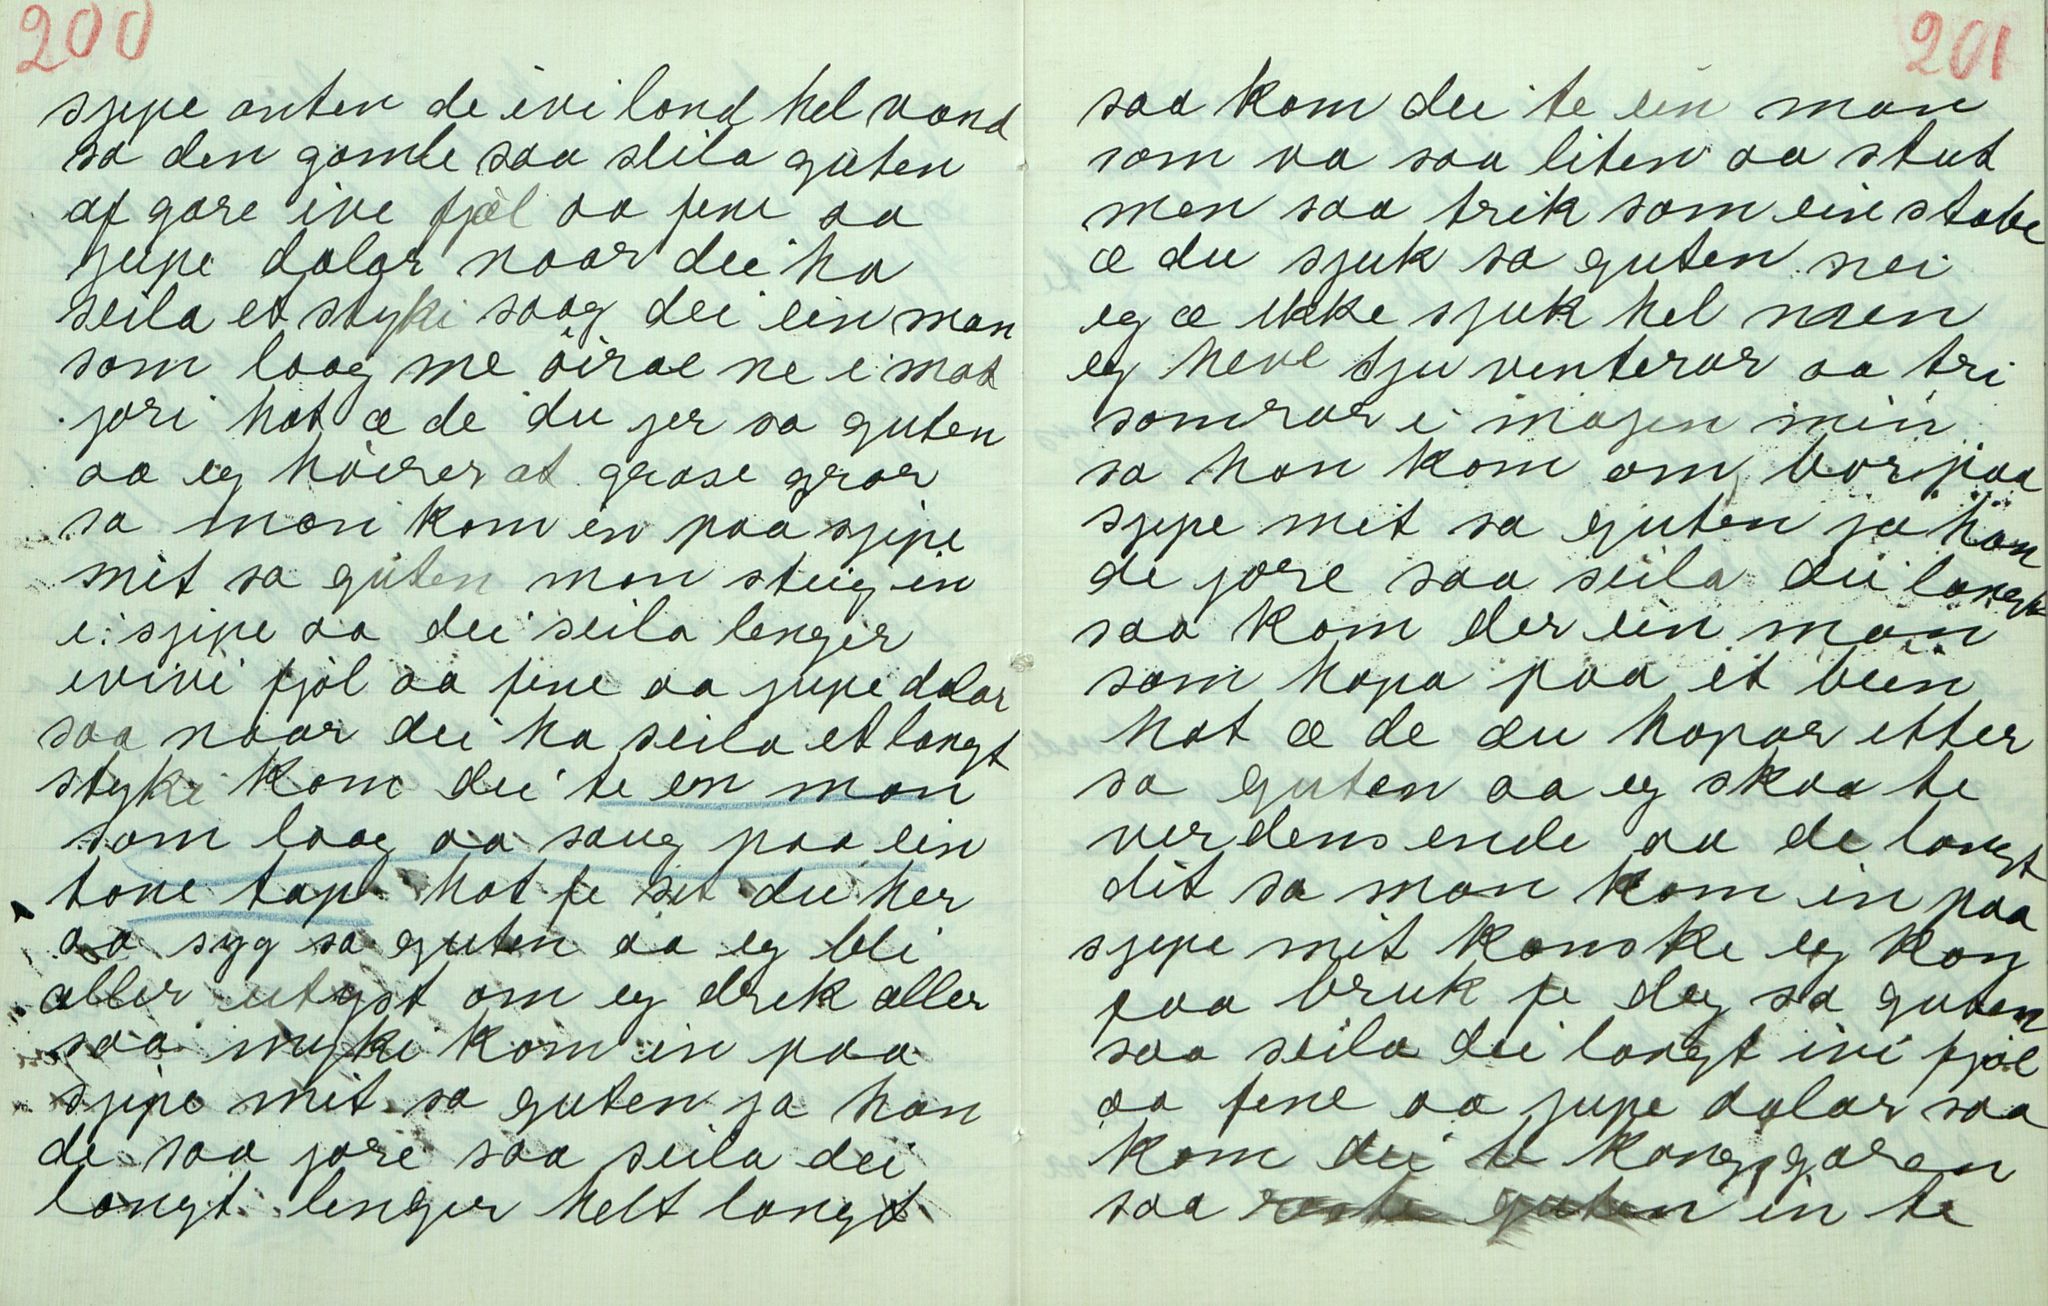 200
sjipe anten de ivi land hel vand
sa den gamle saa seila guten
af gare ive fjøl aa fene aa
jupe dalar naar dei ha
seila et styki saag dei ein man
som laag me öirae ne i mot
jori hot æ de du jer sa guten
aa eg höirer at grase gror
sa man kom in paa sjipe
mit sa guten man steig in
i sjipe aa dei seila lenger
ivivi fjöl aa fene aa jupe dalar
saa naar dei ha seila et langt
styki kom dei te en man
som laag aa saug paa ein
tone tap hot fe set du her
aa syg sa guten aa eg bli
aller utyst om eg drek aller
saa myki kom in paa
sjipe mit sa guten ja han
de saa jore saa seila dei
langt lenger helt langt
201
saa kom dei te ein man
som va saa liten aa stut
men saa trik som ein stabe
æ du sjuk sa guten nei
eg æ ikke sjuk hel men
eg heve tju venterar aa tri
somrar i majen min
sa han kom om bor paa
sjipe mit sa guten ja han
de jore saa seila dei langt
saa kom der ein man
som hopa paa et bein
hot æ de du hopar etter
sa guten aa eg skaa te
verdens ende aa de langt
dit sa man kom in paa
sjipe mit kanske eg kan
faa bruk fe deg sa guten
saa seila dei langt ivi fjöl
aa fene aa jupe dalar saa
kom dei te kongsgaren
saa guten in te